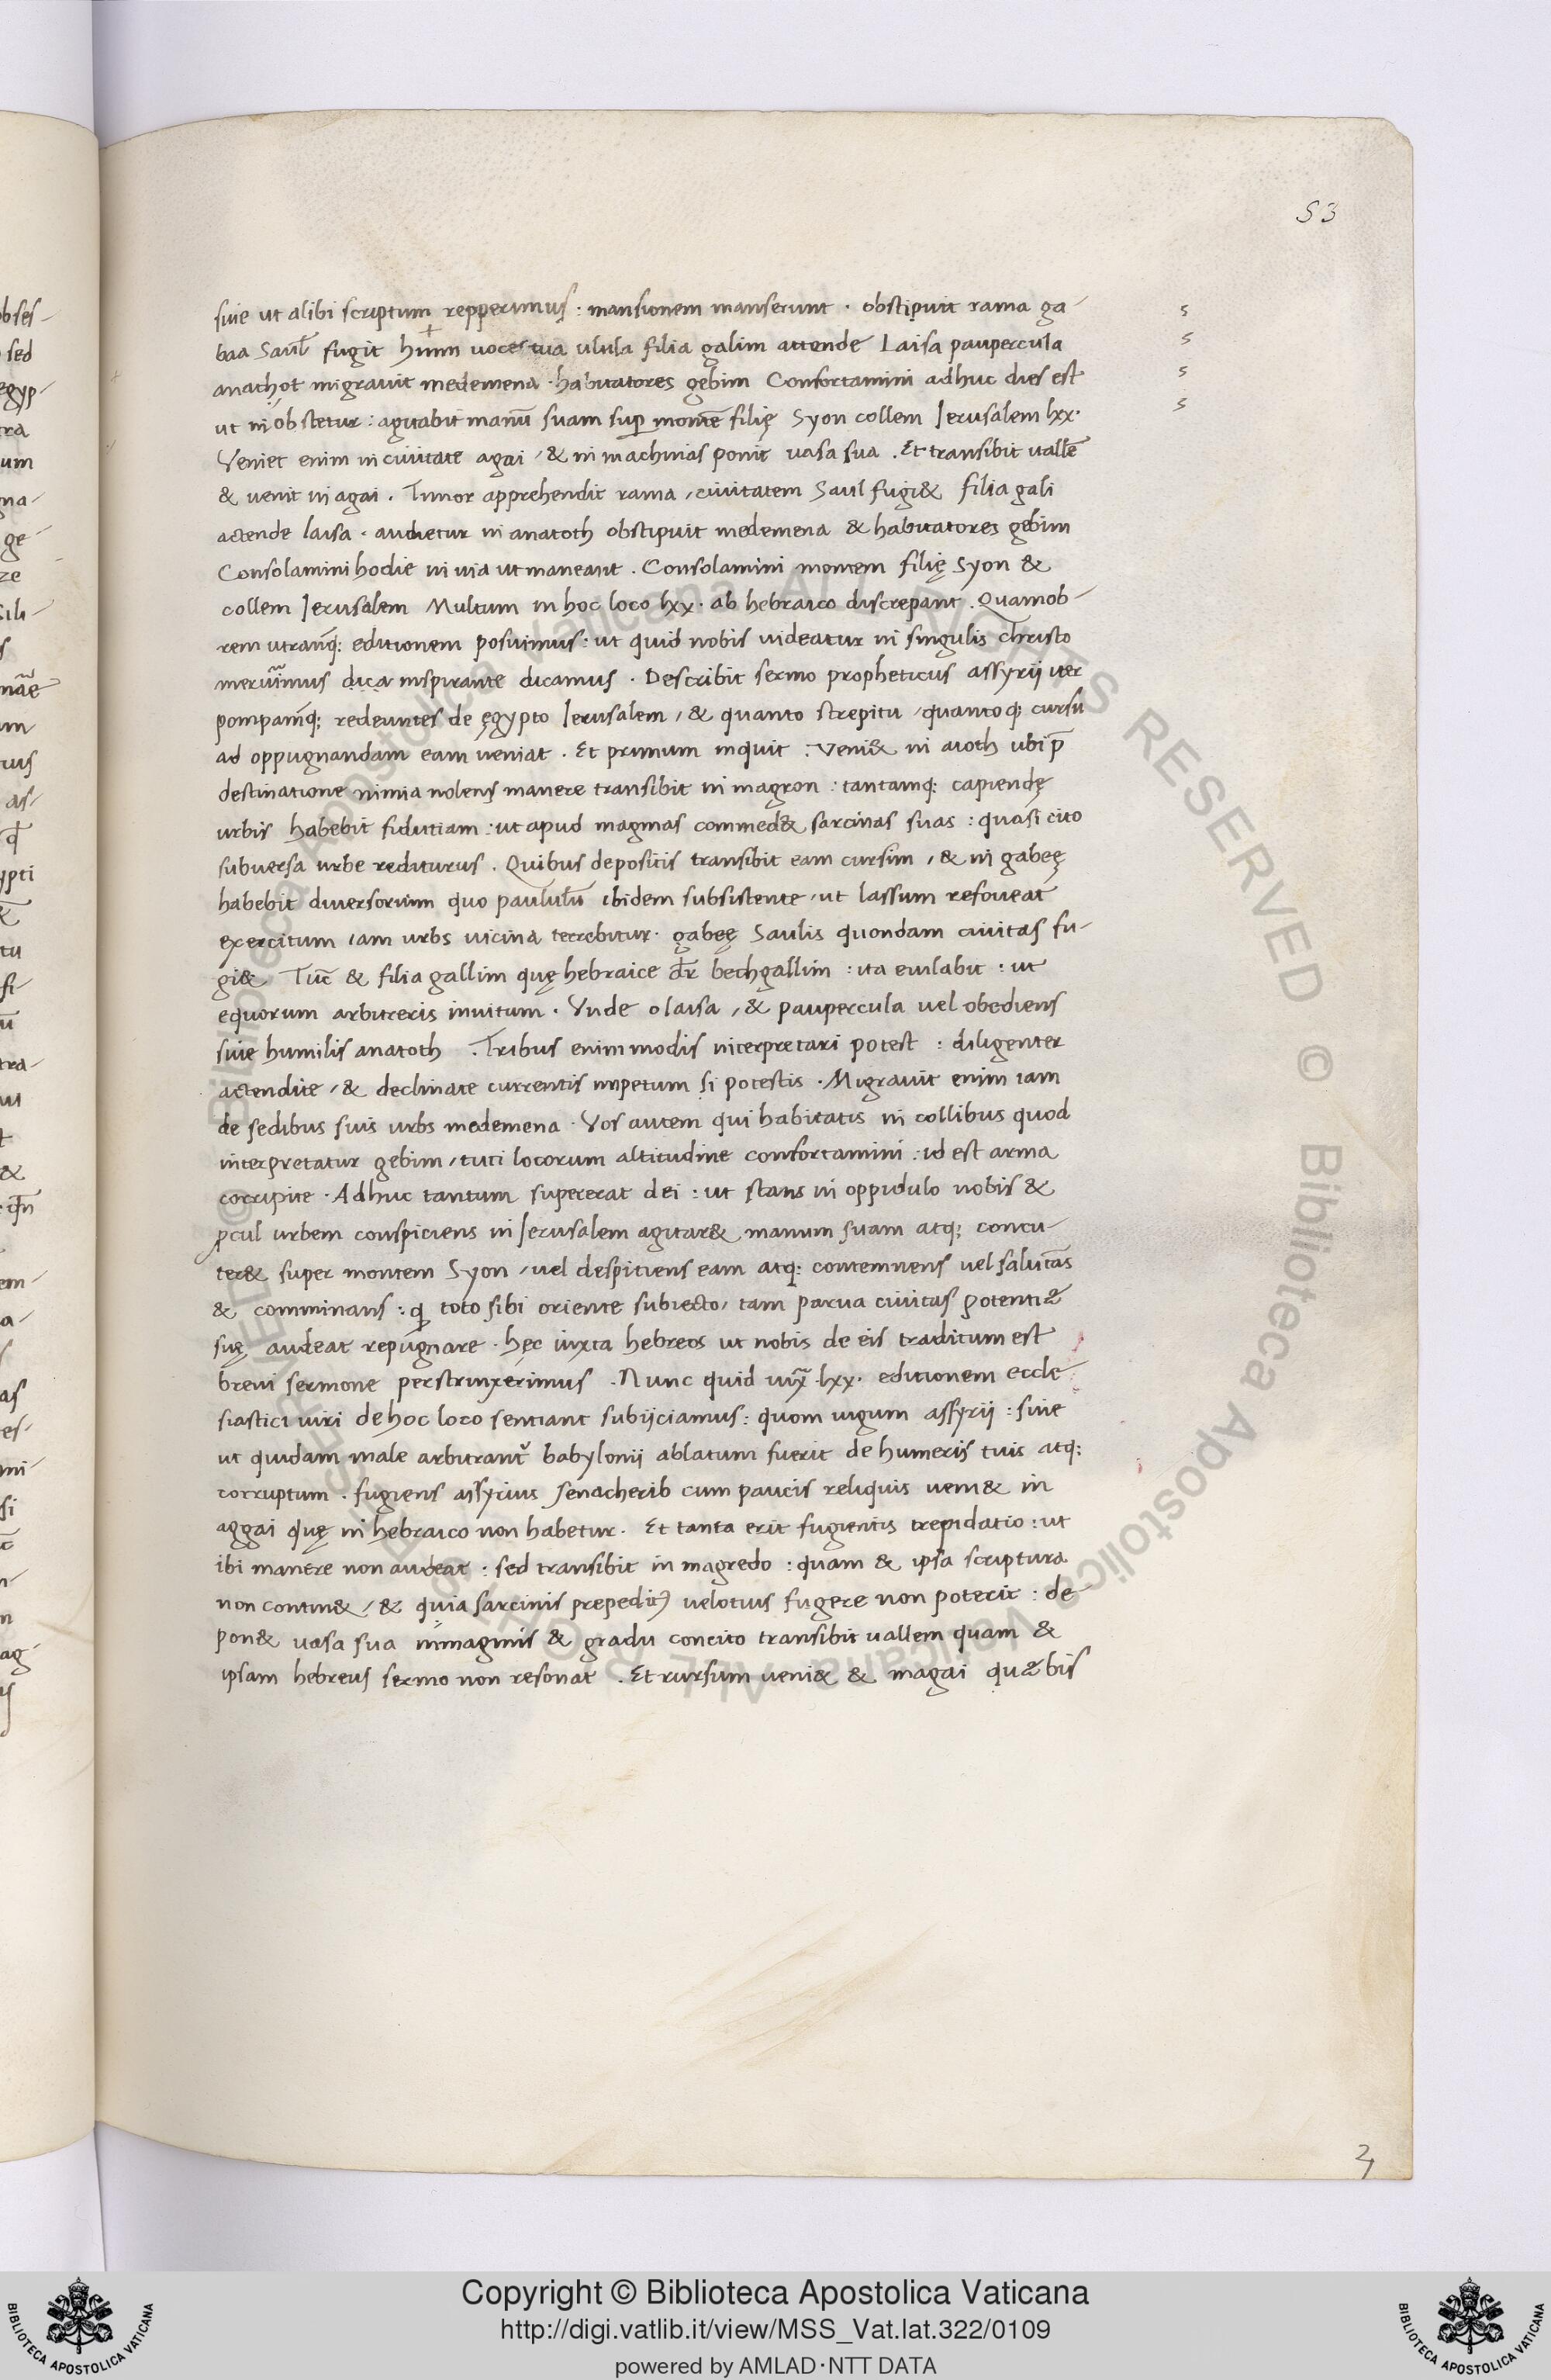 53
siue ut alibi scriptum repperimus : mansionem manserunt . obstipuit rama ga-
baa Saul̄ fugit hinni uoce tua ulula filia galim attende Laisa paupercula
anathot migrauit medemena . habitatores gebim Confortamini adhuc dies est
ut in obstetur : agitabit manū suam sup̱ montē filię Syon collem Jerusalem lxx.
Veniet enim in ciuitate agai / & in machinas ponit uasa sua . Et transibit uallē
& uenit in agai . Timor apprehendit rama / ciuitatem Saul fugi& filia gali
actende laisa . audietur in anatoth obstipuit medemena & habitatores gebim
Consolamini hodie in uia ut maneant . Consolamini montem filię Syon &
collem Jerusalem Multum in hoc loco lxx . ab hebraico discrepant . Quamob-
rem utranq; editionem posuimus : ut quid nobis uideatur in singulis Christo
inspirante dicamus . Describit sermo propheticus assyrij iter
pompamq; redeuntes de ęgypto Jerusalem / & quanto strepitu / quantoq; cursu
ad oppugnandam eam ueniat . Et primum inquit : Veni& in aioth ubi p̄
destinatione nimia nolens manere transibit in magron : tantamq; capiendę
urbis habebit fidutiam : ut apud magmas commed& sarcinas suas : quasi cito
subuersa urbe rediturus . Quibus depositis transibit eam cursim / & in gabeę
habebit diuersorium quo paululū ibidem subsistente / ut lassum refoueat
exercitum iam urbs uicina terrebitur . gabeę Saulis quondam ciuitas fu-
gi& Tūc & filia gallim quę hebraice dr̄ bechgallim : ita eiulabit : ut
equorum arbitreris inuitum . Vnde o laisa / & paupercula uel obediens
siue humilis anatoth . Tribus enim modis interpretari potest : diligenter
actendite / & declinate currentis impetum si potestis . Migrauit enim iam
de sedibus suis urbs medemena . Vos autem qui habitatis in collibus quod
interpretatur gebim / tuti locorum altitudine confortamini : id est arma
corripite . Adhuc tantum supererat dei : ut stans in oppidulo nobis &
ꝓcul urbem conspiciens in Jerusalem agitar& manum suam atq; concu-
ter& super montem Syon / uel despitiens eam atq; contemnens uel salutās
& comminans : toto sibi oriente subiecto / tam parua ciuitas potentiæ
suę audeat repugnare . hęc iuxta hebreos ut nobis de eis traditum est
breui sermone perstrinxerimus . Nunc quid iux̄ . lxx . editionem eccle
siastici uiri de hoc loco sentiant subijciamus : quom iugum assyrij : siue
ut quidam male arbitrant᷑ babylonij ablatum fuerit de humeris tuis atq;
corruptum . fugiens assyrius senacherib cum paucis reliquis ueni& in
aggai quę in hebraico non habetur . Et tanta erit fugientis trepidatio : ut
ibi manere non audeat : sed transibit in magredo : quam & ipsa scriptura
non contin& / & quia sarcinis prepeditꝰ uelotius fugere non poterit : de
pon& uasa sua inmagmis & gradu concito transibit uallem quam &
ipsam hebreus sermo non resonat . Et rursum ueni& & magai quæ bis
Copyright © Biblioteca Apostolica Vaticana
http://digi.vatlib.it/view/MSS_Vat.lat.322/0109
powered by AMLAD·NTT DATA